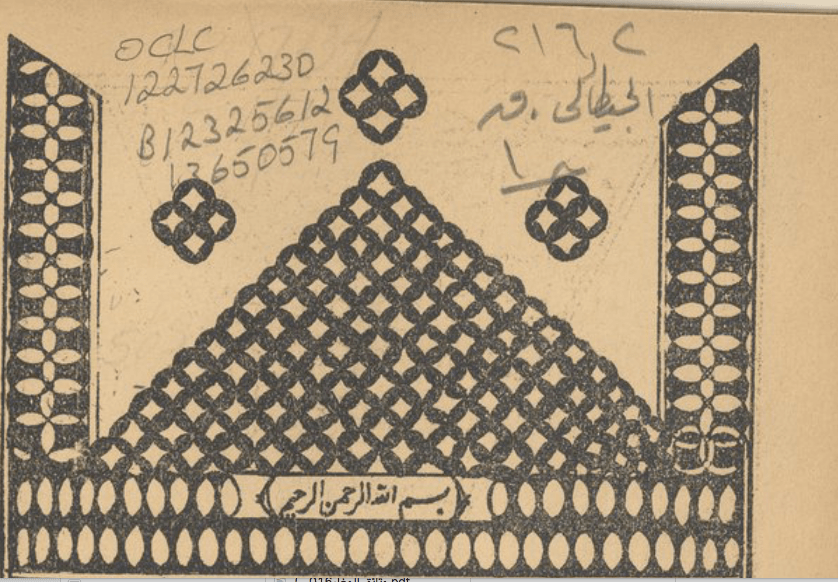 OCLC
122726230
B12325612
13650579
٢١٦٫٢
الجيطالي . قـ
جـ ١
بسم الله الرحمن الرحيم